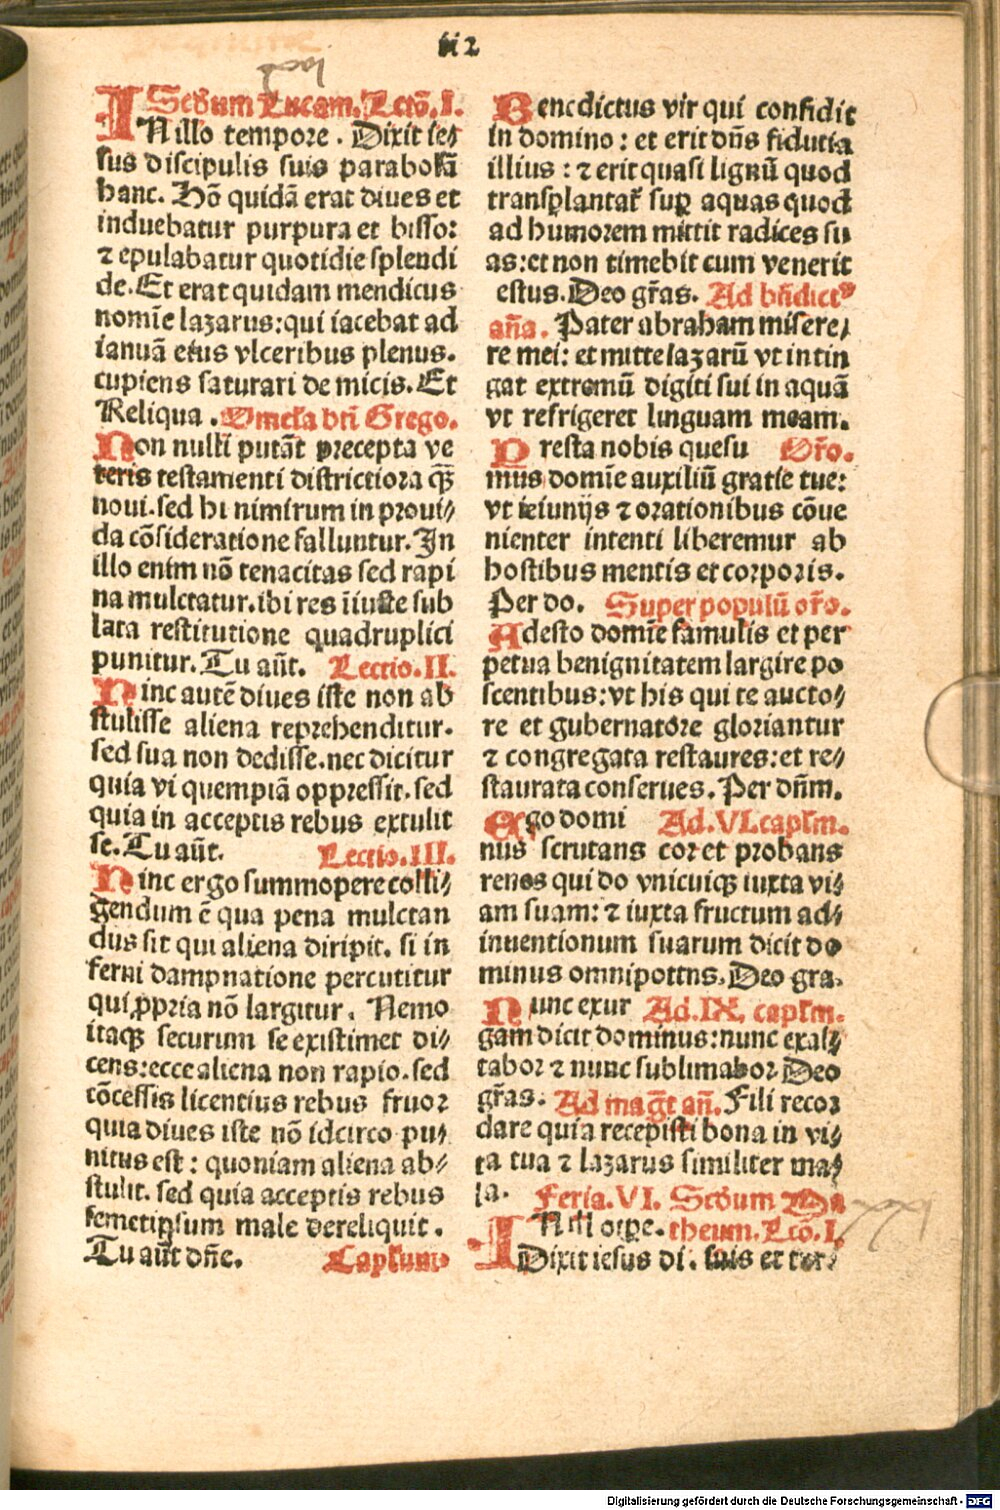 112
Secūdum Lucam. Lectō. I.
IN illo tempore. Dixit ie⸗
sus discipulis suis parabolā
hanc. Hō quidā erat diues et
induebatur purpura et bisso:
⁊ epulabatur quotidie splendi
de. Et erat quidam mendicus
nomīe lazarus: qui iacebat ad
ianuā eius vlceribus plenus.
cupiens saturari de micis. Et
Reliqua. Omelīa btī Grego.
Non nullī putāt precepta ve
teris testamenti districtiora qꝫ̄
noui. sed hi nimirum in proui⸗
da cōsideratione falluntur. In
illo enim nō tenacitas sed rapi
na mulctatur. ibi res īiuste sub
lata restitutione quadruplici
punitur. Tu aūt. Lectio. II.
Hinc autē diues iste non ab
stulisse aliena reprehenditur.
sed sua non dedisse. nec dicitur
quia vi quempiā oppressit. sed
quia in acceptis rebus extulit
se. Tu aūt. Lectio. III.
Hinc ergo summopere colli⸗
gendum ē qua pena mulctan
dus sit qui aliena diripit. si in
ferni dampnatione percutitur
qui ꝓpria nō largitur. Nemo
itaqꝫ securum se existimet di⸗
cens: ecce aliena non rapio. sed
cōcessis licentius rebus fruor
quia diues iste nō idcirco pu⸗
nitus est: quoniam aliena ab⸗
stulit. sed quia acceptis rebus
semetipsum male dereliquit.
Tu aūt dn̄e. Capłum.
Benedictus vir qui confidit
in domino: et erit dn̄s fiducia
illius: ⁊ erit quasi lignū quod
transplantat̄ sup̲ aquas quod
ad humorem mittit radices su
as: et non timebit cum venerit
estus. Deo gr̄as. Ad bn̄dictꝰ
an̄a. Pater abraham misere⸗
re mei: et mitte lazarū vt intin
gat extremū digiti sui in aquā
vt refrigeret linguam meam.
Presta nobis quesu Or̄o.
mus domīe auxiliū gratie tue:
vt ieiunijs ⁊ orationibus cōue
nienter intenti liberemur ab
hostibus mentis et corporis.
Per do. Super populū or̄o.
Adesto domīe famulis et per
petua benignitatem largire po
scentibus: vt his qui te aucto⸗
re et gubernatore gloriantur
⁊ congregata restaures: et re⸗
staurata conserues. Per dn̄m.
Ego domi Ad. VI. capłm.
nus scrutans cor et probans
renes qui do vnicuiqꝫ iuxta vi⸗
am suam: ⁊ iuxta fructum ad⸗
inuentionum suarum dicit do
minus omnipotens. Deo gra.
Nunc exur Ad. IX. capłm.
gam dicit dominus: nunc exal⸗
tabor ⁊ nunc sublimabor. Deo
gr̄as. Ad mag̅t an̄. Fili recor
dare quia recepisti bona in vi⸗
ta tua ⁊ lazarus similiter ma⸗
la. Feria. VI. Secūdum Ma
IN illo tp̄e. theum. Lcō. I.
Dixit iesus di. suis et tur⸗
xxi
Digitalisierung gefördert durch die Deutsche Forschungsgemeinschaft - DFG